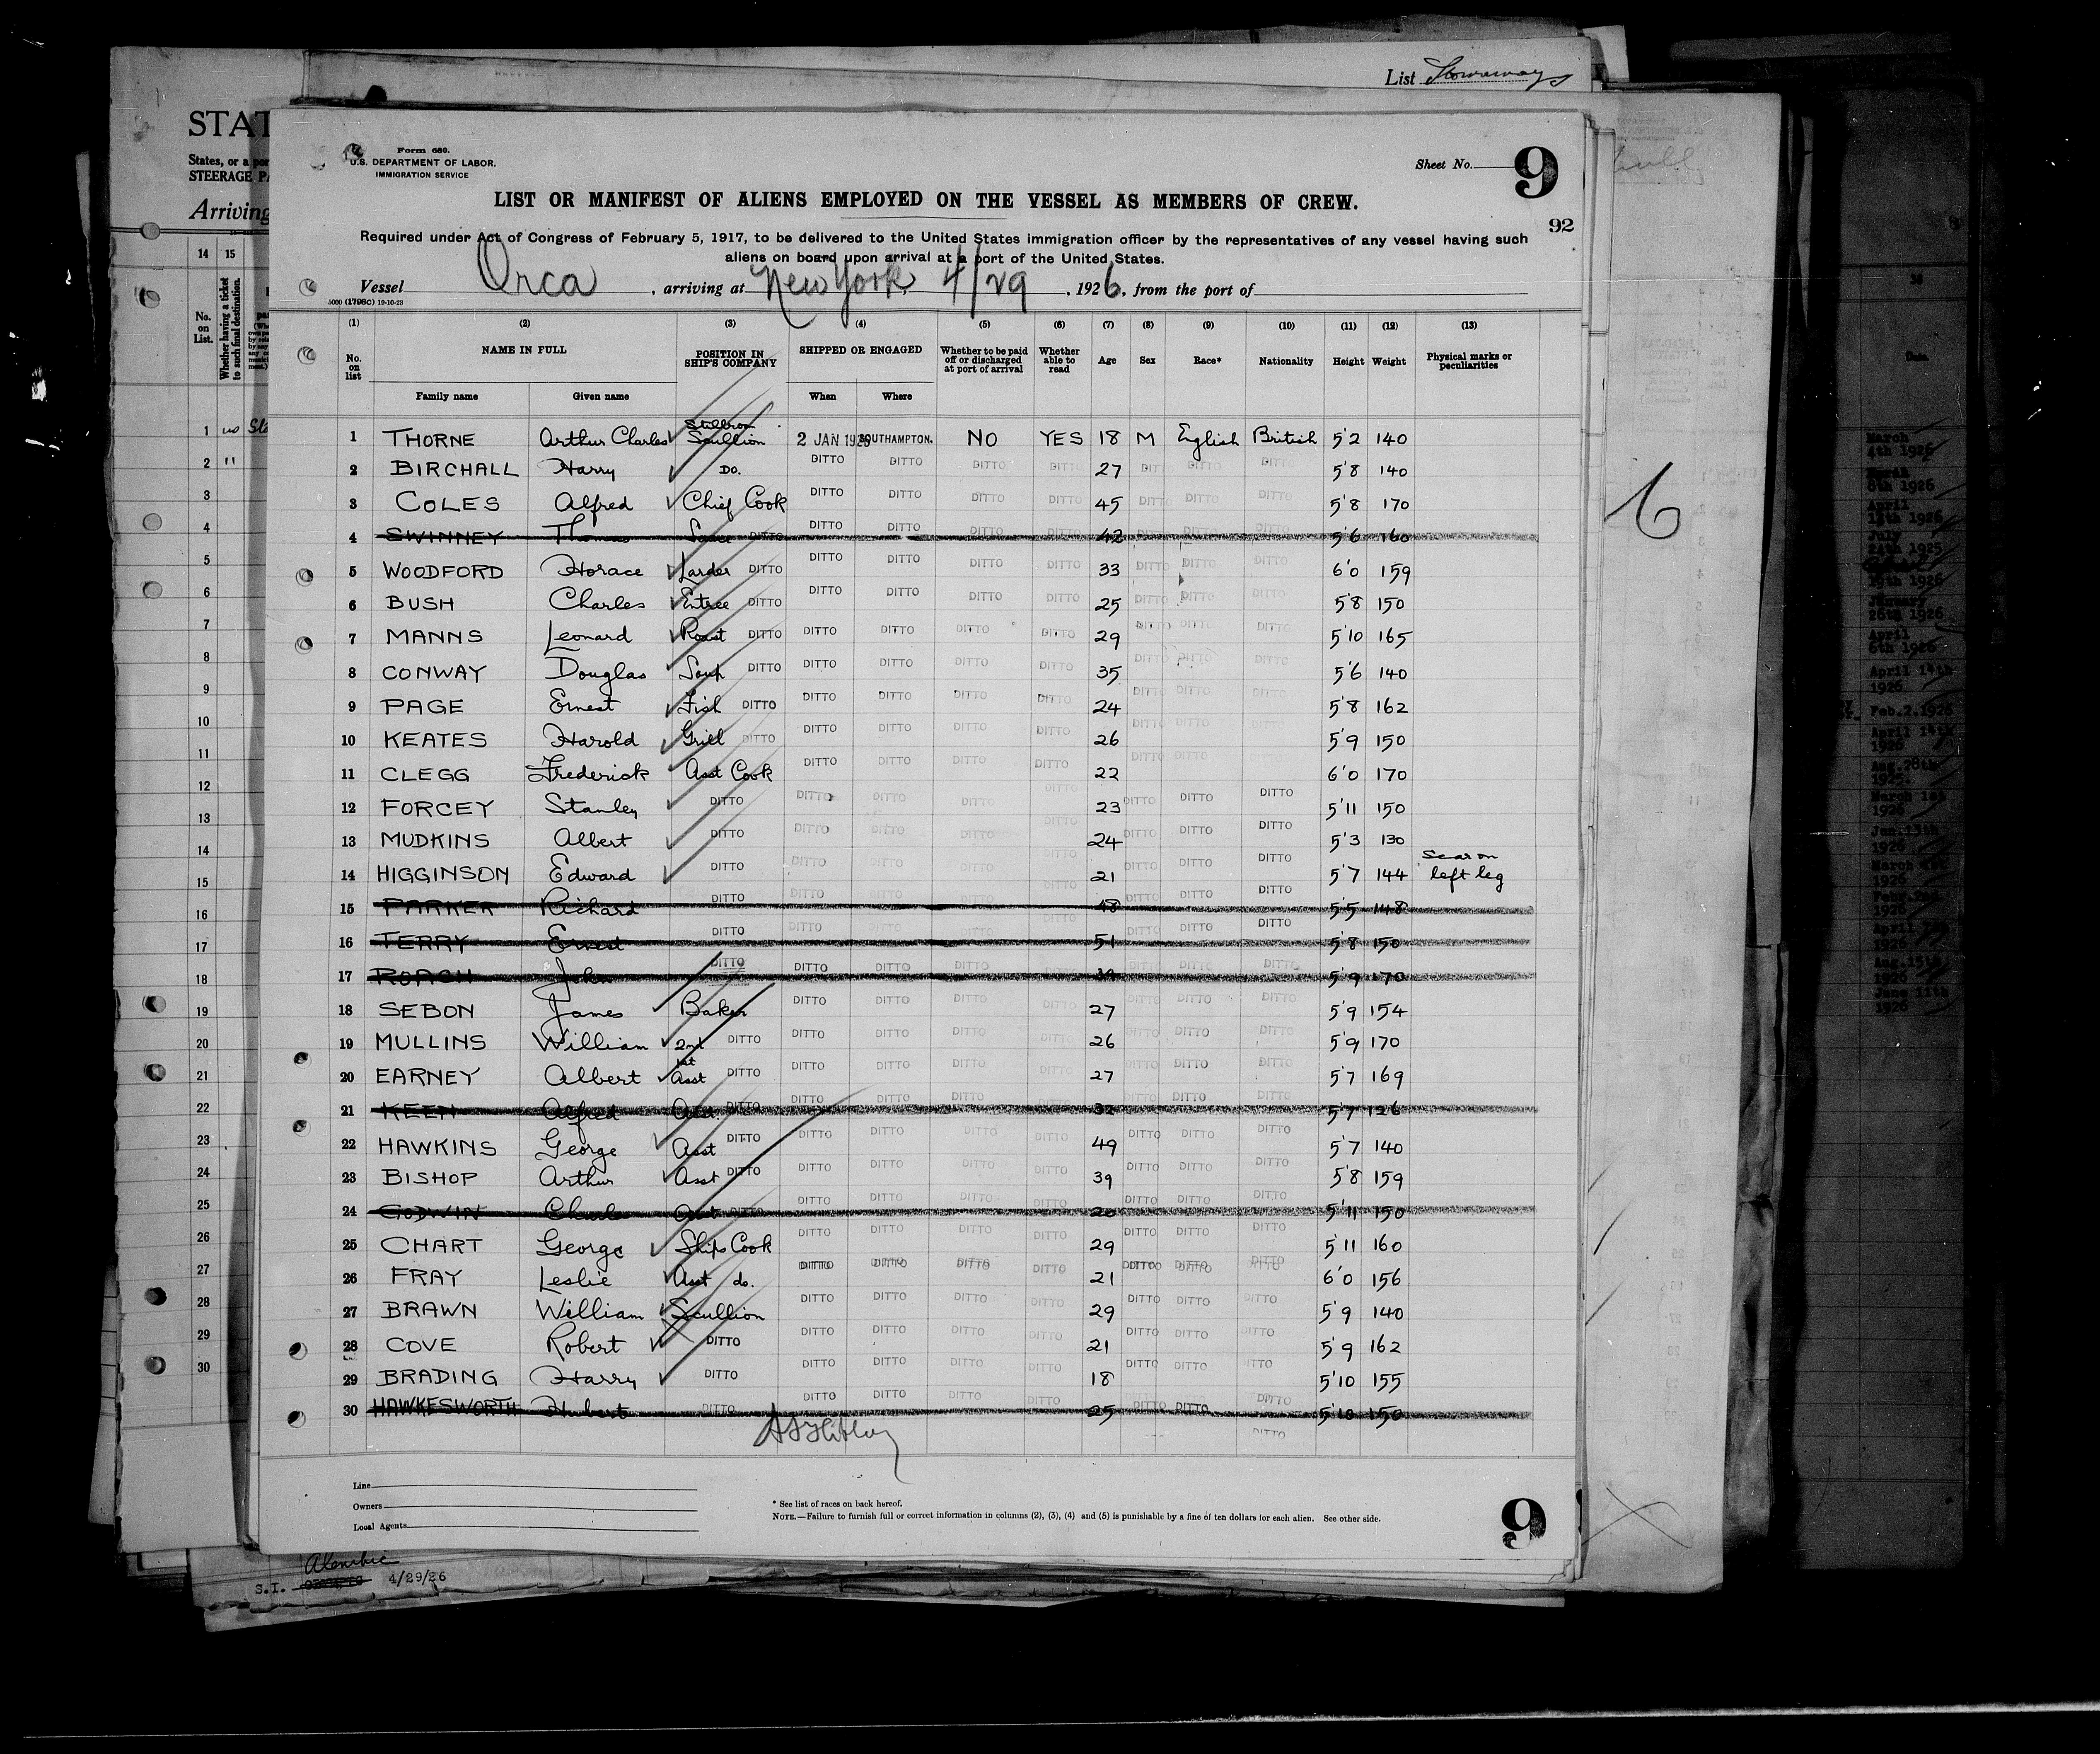 List Stowaways
STAT
States, or a por
STEERAGE PA
Arriving
14 15
No. on List.
Whether having a ticket to such final destination.
Form 680.
U.S. DEPARTMENT OF LABOR.
IMMIGRATION SERVICE
Sheet No. 9
92
LIST OR MANIFEST OF ALIENS EMPLOYED ON THE VESSEL AS MEMBERS OF CREW.
Required under Act of Congress of February 5, 1917, to be delivered to the United States immigration officer by the representatives of any vessel having such
aliens on board upon arrival at a port of the United States.
Vessel Orca, arriving at New York, 4/29, 1926, from the port of
5000 (1798C) 19-10-23
(1) (2) (3) (4) (5) (6) (7) (8) (9) (10) (11) (12) (13)
No. on list NAME IN FULL POSITION IN SHIP'S COMPANY SHIPPED OR ENGAGED Whether to be paid off or discharged at port of arrival Whether able to read Age Sex Race* Nationality Height Weight Physical marks or peculiarities
Family name Given name When Where
1 THORNE Arthur Charles Stillroom Scullion 2 JAN 1926 SOUTHAMPTON. NO YES 18 M English British 5'2 140
2 BIRCHALL Harry DO. DITTO DITTO DITTO DITTO 27 DITTO DITTO DITTO 5'8 140
3 COLES Alfred Chief Cook DITTO DITTO DITTO DITTO 45 DITTO DITTO DITTO 5'8 170
4 SWINNEY Thomas Sauce DITTO DITTO DITTO DITTO DITTO 42 DITTO DITTO DITTO 5'6 160
5 WOODFORD Horace Larder DITTO DITTO DITTO DITTO DITTO 33 DITTO DITTO DITTO 6'0 159
6 BUSH Charles Entree DITTO DITTO DITTO DITTO DITTO 25 DITTO DITTO DITTO 5'8 150
7 MANNS Leonard Roast DITTO DITTO DITTO DITTO DITTO 29 DITTO DITTO DITTO 5'10 165
8 CONWAY Douglas Soup DITTO DITTO DITTO DITTO DITTO 35 DITTO DITTO DITTO 5'6 140
9 PAGE Ernest Fish DITTO DITTO DITTO DITTO DITTO 24 DITTO DITTO DITTO 5'8 162
10 KEATES Harold Grill DITTO DITTO DITTO DITTO DITTO 26 DITTO DITTO DITTO 5'9 150
11 CLEGG Frederick Asst Cook DITTO DITTO DITTO DITTO 22 DITTO DITTO 6'0 170
12 FORCEY Stanley DITTO DITTO DITTO DITTO DITTO 23 DITTO DITTO DITTO 5'11 150
13 MUDKINS Albert DITTO DITTO DITTO DITTO DITTO 24 DITTO DITTO DITTO 5'3 130
14 HIGGINSON Edward DITTO DITTO DITTO DITTO DITTO 21 DITTO DITTO DITTO 5'7 144 Scar on left leg
15 PARKER Richard DITTO DITTO DITTO DITTO DITTO 48 DITTO DITTO DITTO 5'5 148
16 TERRY Ernest DITTO DITTO DITTO DITTO DITTO 51 DITTO DITTO DITTO 5'8 150
17 ROACH John DITTO DITTO DITTO DITTO DITTO DITTO DITTO DITTO 5'9 170
18 SEBON James Baker DITTO DITTO DITTO DITTO 27 DITTO DITTO DITTO 5'9 154
19 MULLINS William 2nd DITTO DITTO DITTO DITTO DITTO 26 DITTO DITTO DITTO 5'9 170
20 EARNEY Albert 1st Asst DITTO DITTO DITTO DITTO DITTO 27 DITTO DITTO DITTO 5'7 169
21 KEEN Alfred Asst. DITTO DITTO DITTO DITTO DITTO 32 DITTO DITTO DITTO 5'7 126
22 HAWKINS George Asst DITTO DITTO DITTO DITTO DITTO 49 DITTO DITTO DITTO 5'7 140
23 BISHOP Arthur Asst DITTO DITTO DITTO DITTO DITTO 39 DITTO DITTO DITTO 5'8 159
24 GODWIN Charles Asst DITTO DITTO DITTO DITTO DITTO 20 DITTO DITTO DITTO 5'11 150
25 CHART George Ships Cook DITTO DITTO DITTO DITTO 29 DITTO DITTO DITTO 5'11 160
26 FRAY Leslie Asst do. DITTO DITTO DITTO DITTO 21 DITTO DITTO DITTO 6'0 156
27 BRAWN William Scullion DITTO DITTO DITTO DITTO 29 DITTO DITTO DITTO 5'9 140
28 COVE Robert DITTO DITTO DITTO DITTO DITTO 21 DITTO DITTO DITTO 5'9 162
29 BRADING Harry DITTO DITTO DITTO DITTO DITTO 18 DITTO DITTO DITTO 5'10 155
30 HAWKESWORTH Hubert DITTO DITTO DITTO DITTO DITTO 25 DITTO DITTO DITTO 5'10 150
DITTO
Line
Owners
Local Agents
* See list of races on back hereof.
NOTE.—Failure to furnish full or correct information in columns (2), (3), (4) and (5) is punishable by a fine of ten dollars for each alien. See other side.
9
6
Alembic
S.I. 4/29/26
March 4th 1926
April 14th 1926
Feb.2.1926